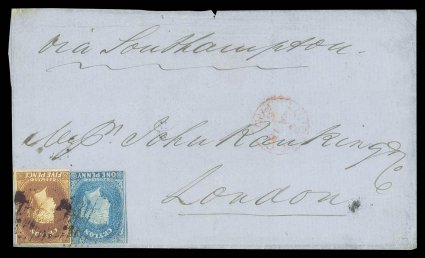 via Southampton.
Messrs. John Ranking & Co
London
FIVE PENCE
CEYLON
ONE PENNY
CEYLON